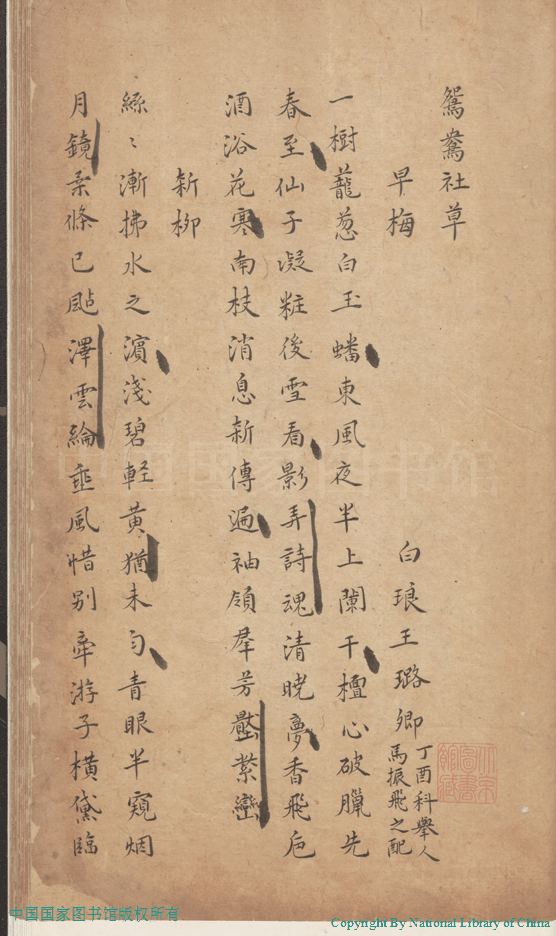 鴛鴦社草
早梅 白琅王璐卿 丁酉科舉人馬振飛之配
一樹蘢葱白玉蟠東風夜半上闌干檀心破臘先
春至仙子凝粧後雪看影弄詩魂清曉夢香飛卮
酒浴花寒南枝消息新傳遍袖領羣芳壓紫巒
新柳
絲〻漸拂水之濱淺碧輕黄猶未勻青眼半窺烟
月鏡柔條已颭澤雲綸亜風惜別牽游子横黛臨
中国国家图书馆版权所有
Copyright By National Library of China